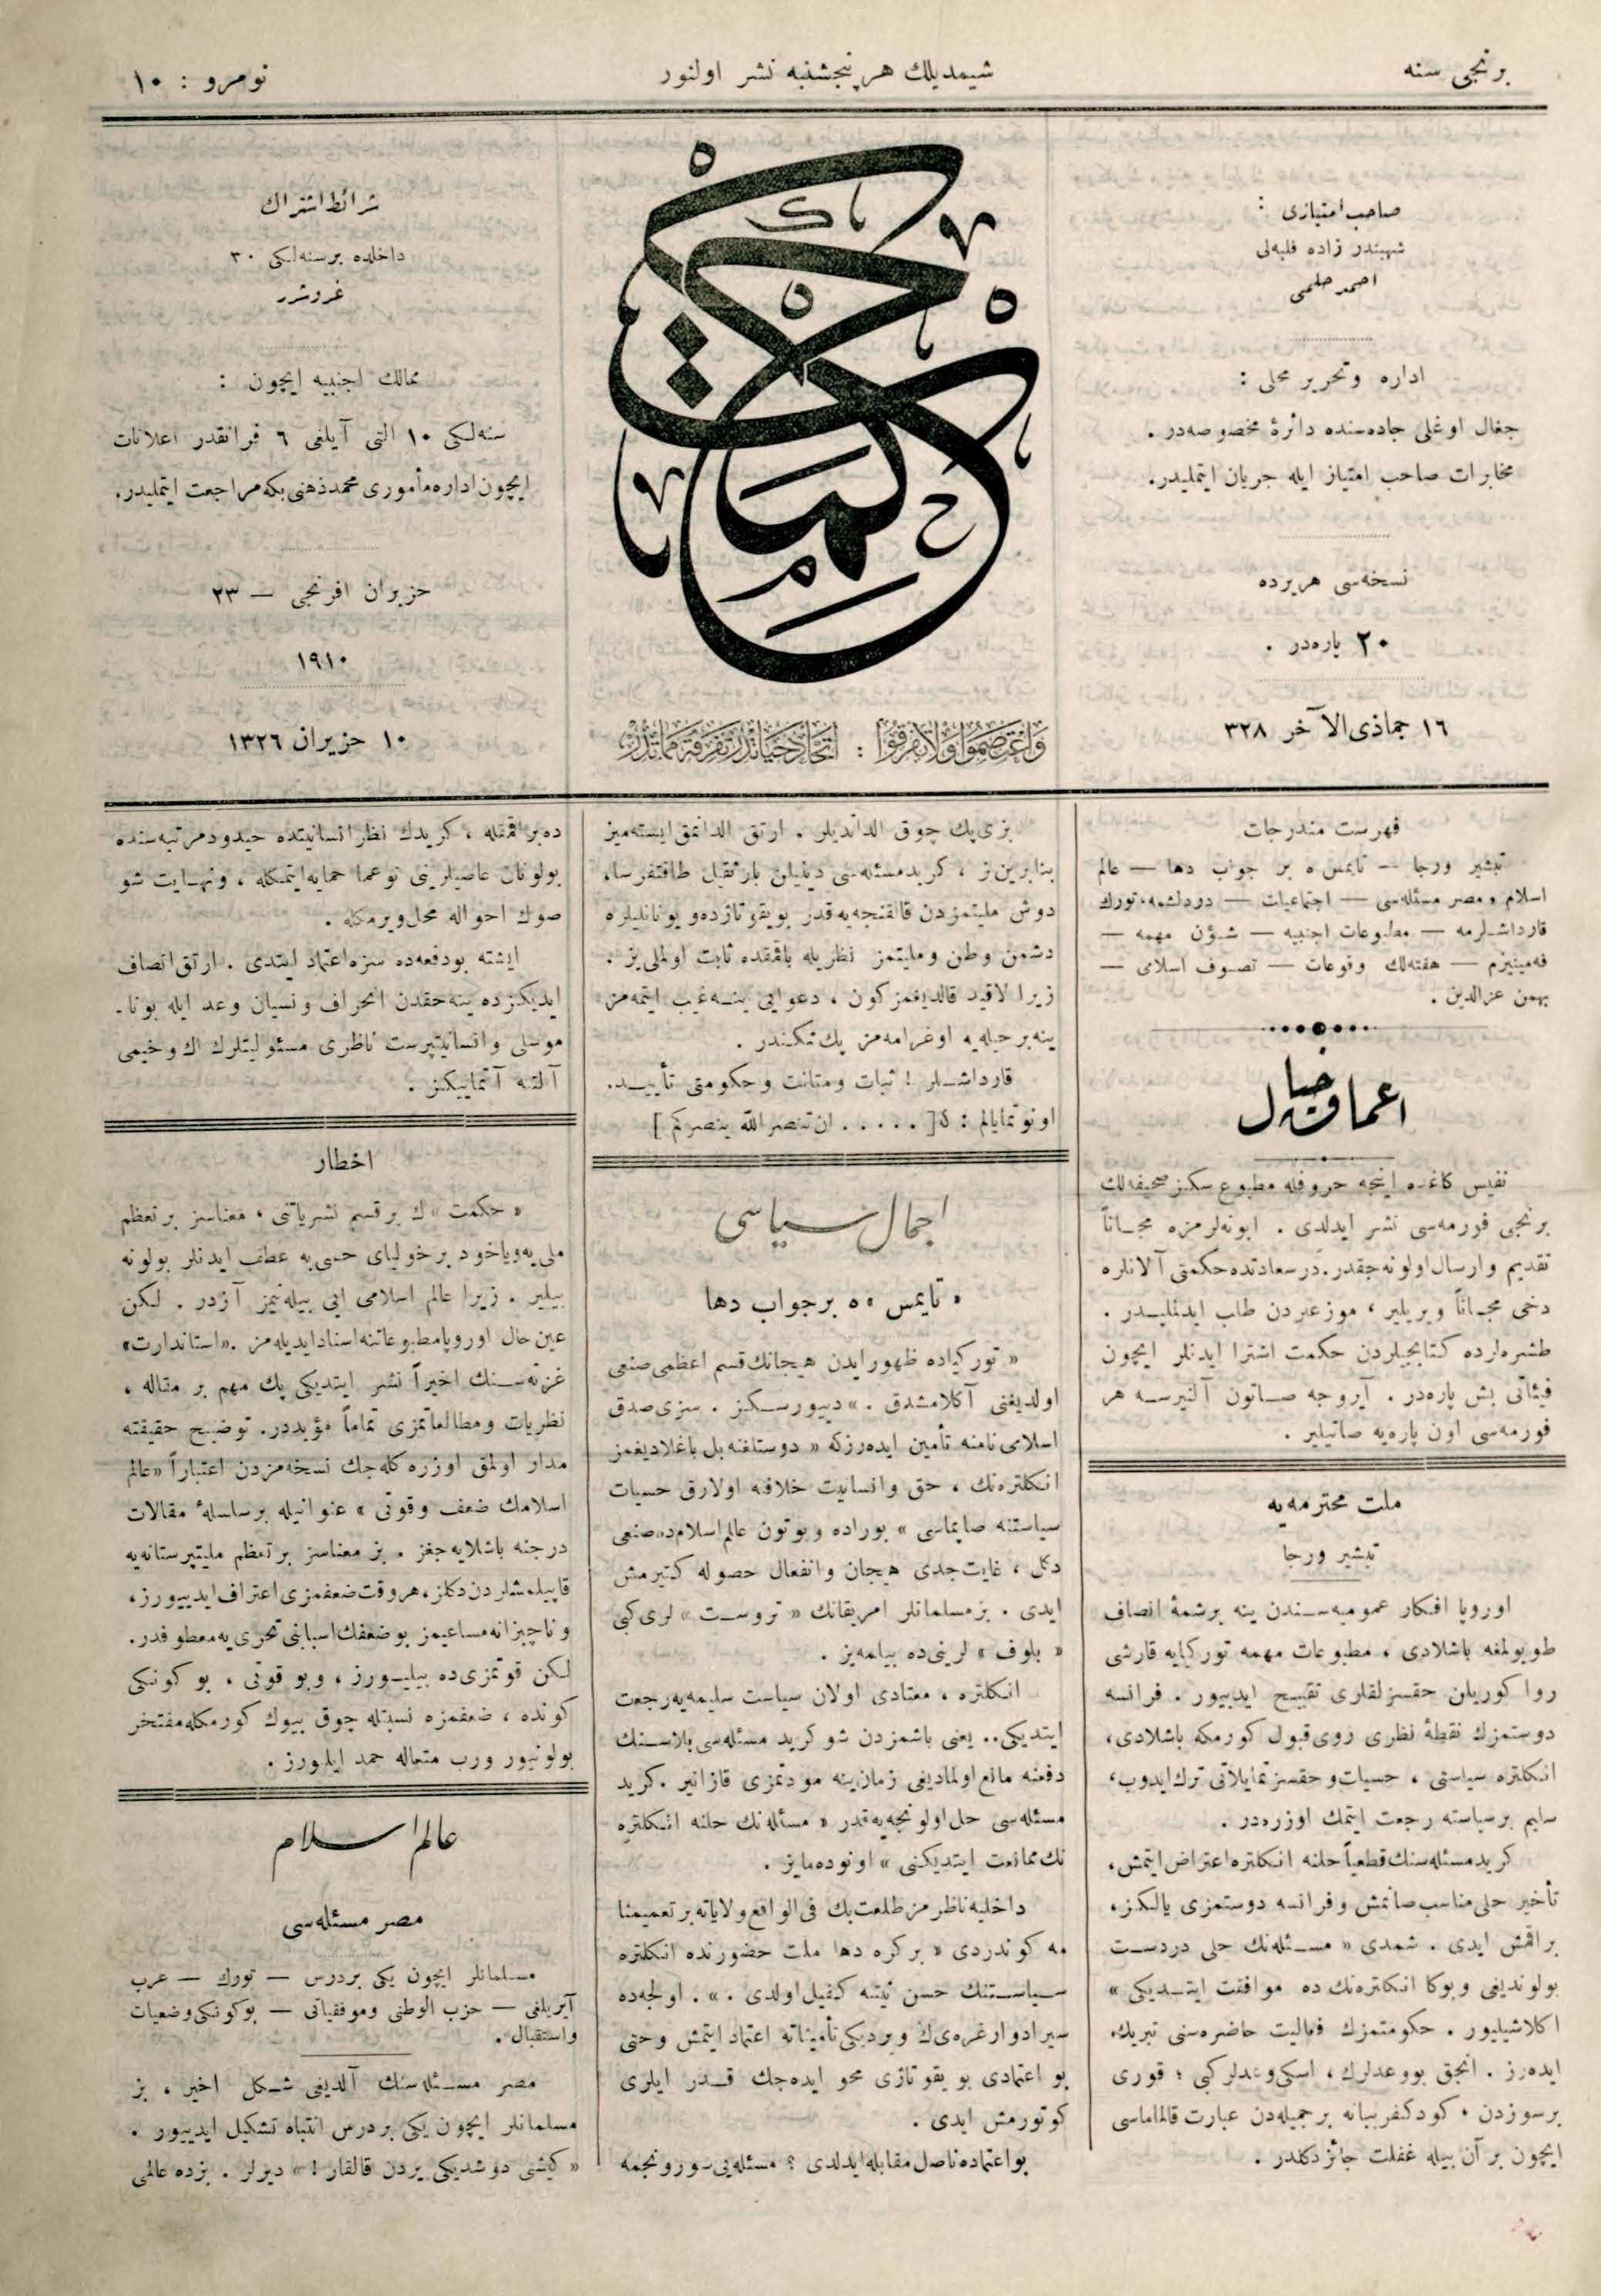 برنجی سنه
شیمدیلك هر پنجشنبه نشر اولنور
نومرو : ١٠
صاحب امتیازی :
شهبندر زاده فلبه‌لی
احمد حلمی
اداره وتحریر محلی :
جغال اوغلی جاده‌سنده دائرهٔ مخصوصه‌در .
مخابرات صاحب امتیاز ایله جریان ایتملیدر.
نسخه‌سی هریرده
٢٠ پاره‌در .
١٦ جماذی‌الآخر ٣٢٨
حكمت
واعتصموا ولا تفرقوا : اتحاد حیاتدر تفرقه مماتدر
شرائط اشتراك
داخلده برسنه‌لكی ٣٠
غروشدر
ممالك اجنبیه ایچون :
سنه‌لكی ١٠ التی آیلغی ٦ فرانقدر اعلانات
ایچون اداره مأموری محمدذهنی بكه مراجعت ایتملیدر.
حزیران افرنجی — ٢٣
١٩١٠
١٠ حزیران ١٣٢٦
فهرست مندرجات
تبشیر ورجا — تایمس ه بر جواب دها — عالم
اسلام ومصر مسئله‌سی — اجتماعیات — دردلشمه، تورك
قارداشلرمه — مطبوعات اجنبیه — شؤن مهمه —
فه‌مینیزم — هفته‌لك وقوعات — تصوف اسلامی —
بهمن عزالدین .
اعماق خیال
نفیس كاغده اینجه حروفله مطبوع سكز صحیفه‌لك
برنجی فورمه‌سی نشر ایدلدی . ابونه‌لرمزه مجاناً
تقدیم وارسال اولونه‌جقدر. درسعادتده حكمتی آلانلره
دخی مجاناً ویریلیر ، موزعلردن طلب ایدلملیدر .
طشره‌لرده كتابجیلردن حكمت اشترا ایدنلر ایچون
فیئاتی بش پاره‌در . آیروجه صاتون آلنیرسه هر
فورمه‌سی اون پاره‌یه صاتیلیر .
ملت محترمه‌یه
تبشیر ورجا
اوروپا افكار عمومیه‌سندن ینه برشمهٔ انصاف
طویولمغه باشلادی ، مطبوعات مهمه توركیایه قارشی
روا كوریلن حقسزلقلری تقبیح ایدییور . فرانسه
دوستمزك نقطهٔ نظری روی قبول كورمكه باشلادی،
انكلتره سیاستی ، حسیات و حقسز تمایلاتی ترك ایدوب،
سلیم برسیاسته رجعت ایتمك اوزره‌در .
كرید مسئله‌سنك قطعیاً حلنه انكلتره اعتراض ایتمش،
تأخیر حلی مناسب صانمش وفرانسه دوستمزی یالكز،
براقمش ایدی . شمدی « مسئله‌نك حلی دردست
بولوندیغی وبوكا انكلتره‌نك ده موافقت ایتدیكی »
اكلاشیلیور . حكومتمزك فعالیت حاضره‌سنی تبریك
ایده‌رز . انجق بووعدلرك ، اسكی وعدلر كبی ؛ قوری
برسوزدن ، كودكفریبانه برجمیله‌دن عبارت قالماماسی
ایچون بر آن بیله غفلت جائز دكلدر .
بزی پك چوق الداتدیلر . ارتق الدانمق ایسته‌میز
بنابرین ، كرید مسئله‌سی دینیلن بارثقیل طاقتفرسا،
دوش ملیتمزدن قالقنجه‌یه قدر بویقوتاژده و یونانلیلره
دشمن وطن وملیتمز نظریله باقمقده ثابت اولملی‌یز .
زیرا لاقید قالدیغمز كون ، دعوایی ینه غیب ایتمه‌من
ینه برحیله‌یه اوغرامه‌من پك ممكندر .
قارداشلر ! ثبات ومتانت وحكومتی تأیید.
اونوتمایالم : كه [ ..... ان تنصرالله ینصركم ]
اجمال سیاسی
« تایمس » ه برجواب دها
« توركیاده ظهور ایدن هیجانك قسم اعظمی صنعی
اولدیغنی آكلامشدق . » دییورسكز . سزی صدق
اسلامی نامنه تأمین ایده‌رزكه « دوستلغنه بل باغلادیغمز
انكلتره‌نك ، حق وانسانیت خلافنه اولارق حسیات
سیاستنه صاپماسی » بوراده وبوتون عالم اسلامده صنعی
دكل ، غایت جدی هیجان وانفعال حصوله كتیرمش
ایدی . بز مسلمانلر امریقانك « تروست » لری كبی
« بلوف » لرینی ده بیلمه‌یز .
انكلتره ، معتادی اولان سیاست سلیمه‌یه رجعت
ایتدیكی.. یعنی باشمزدن شو كرید مسئله‌سی بلاسنك
دفعنه مانع اولمادیغی زمان ینه مودتمزی قازانیر . كرید
مسئله‌سی حل اولونجه‌یه قدر « مسئله‌نك حلنه انكلتره
نك ممانعت ایتدیكنی » اونوده‌مایز .
داخلیه ناظرمز طلعت بك فی الواقع ولایاته بر تعمیمنا
مه كوندردی « بر كره دها ملت حضورنده انكلتره
سیاستنك حسن نیتنه كفیل اولدی . » . اولجه‌ده
سیر ادوارغره‌ی‌ك ویردیكی تأمیناته اعتماد ایتمش وحتی
بو اعتمادی بویقوتاژی محو ایده‌جك قدر ایلری
كوتورمش ایدی .
بواعتماده ناصل مقابله ایدلدی ؟ مسئله‌یی سورونجمه
ده براقمقله ، كریدك نظر انسانیتده حیدود مرتبه‌سنده
بولونان عاصیلرینی نوعما حمایه ایتمكله ، ونهایت شو
صوك احواله محل ویرمكله .
ایشته بودفعه‌ده سزه اعتماد ایتدی . ارتق انصاف
ایدیكزده ینه حقدن انحراف و نسیان وعد ایله بونا-
موسلی وانسانیتپرست ناظری مسئولیتلرك اك وخیمی
آلتنه آتمایيكز .
اخطار
« حكمت » ك برقسم نشریاتنی ، معناسز برتعظم
ملی‌یه ویاخود برخولیای حسی‌یه عطف ایدنلر بولونه
بیلیر . زیرا عالم اسلامی ایی بیله‌نمز آزدر . لكن
عین حال اوروپا مطبوعاتنه اسناد ایدیله‌مز . «استاندارت»
غزته‌سنك اخیراً نشر ایتدیكی پك مهم بر مقاله ،
نظریات ومطالعاتمزی تماماً مؤیددر. توضیح حقیقته
مدار اولمق اوزره كله‌جك نسخه‌مزدن اعتباراً «عالم
اسلامك ضعف وقوتی » عنوانیله برسلسلهٔ مقالات
درجنه باشلایه‌جغز . بز معناسز برتعظم ملیتپرستانه‌یه
قاپیلمشلردن دكلز، هروقت ضعفمزی اعتراف ایدییورز،
وناچیزانه مساعیمز بوضعفك اسبابنی تحری‌یه معطوفدر.
لكن قوتمزی ده بیلیورز ، وبو قوتی ، بو كونكی
كونده ، ضعفمزه نسبتله چوق بیوك كورمكله مفتخر
بولونیور ورب متعاله حمد ایلورز .
عالم اسلام
مصر مسئله‌سی
مسلمانلر ایچون یكی بردرس — تورك — عرب
آیریلغی — حزب الوطنی وموفقیاتی — بوكونكی وضعیات
واستقبال .
مصر مسئله‌سنك آلدیغی شكل اخیر ، بز
مسلمانلر ایچون یكی بردرس انتباه تشكیل ایدییور .
« كیشی دوشدیكی یردن قالقار ! » دیرلر . بزده عالمی